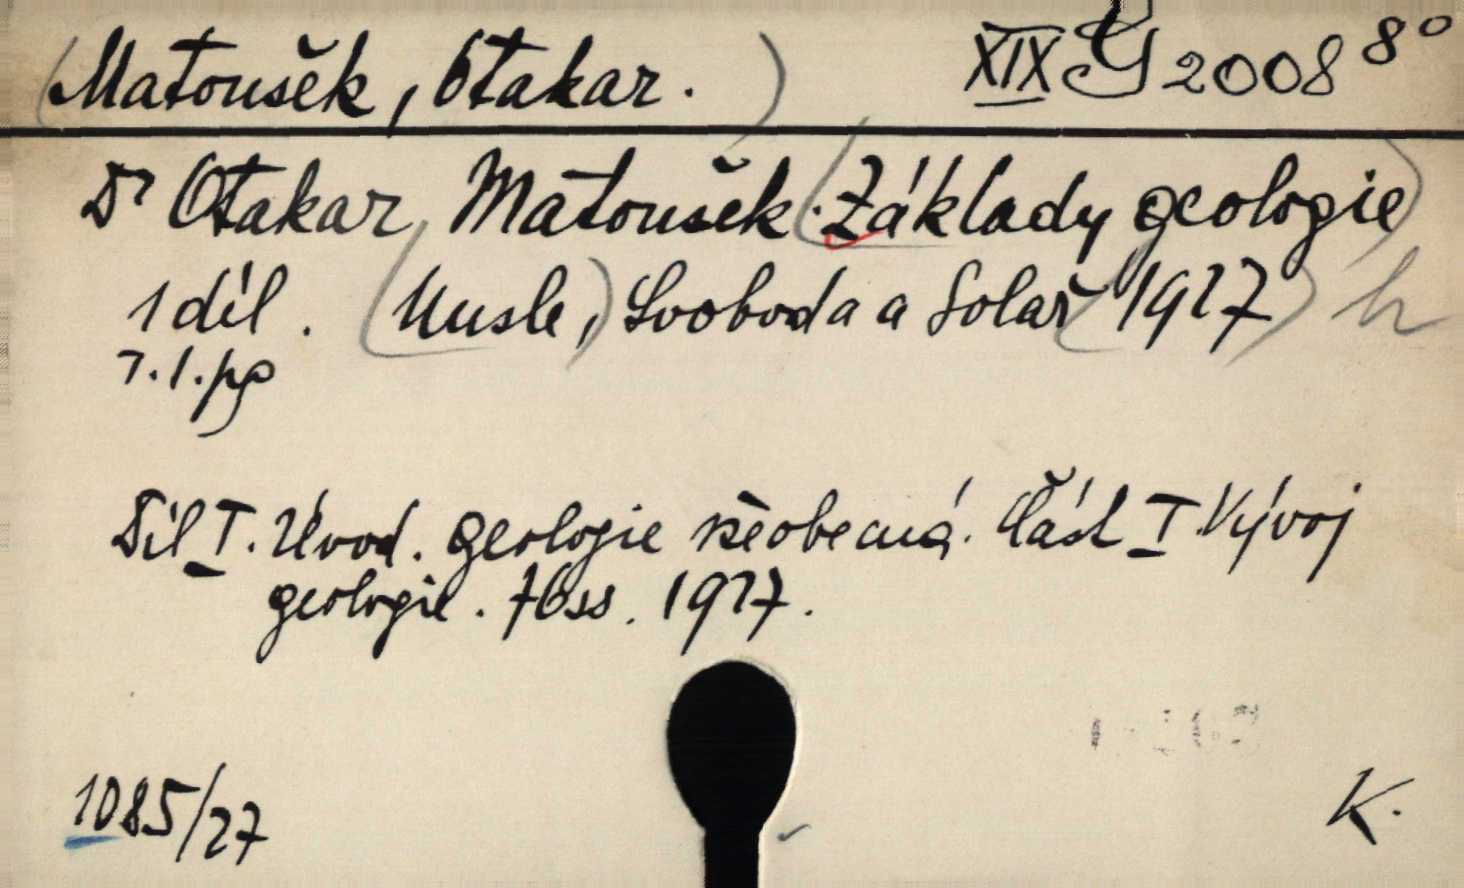 Matoušek, Otakar. XIX G 2008 8°
Dr Otakar Matoušek: Základy geologie
1 díl. Nusle, Svoboda a Solař 1927
Díl I. Úvod. Geologie všeobecná. Část I. Vývoj
geologie. 76 ss. 1927.
1085/27
K.